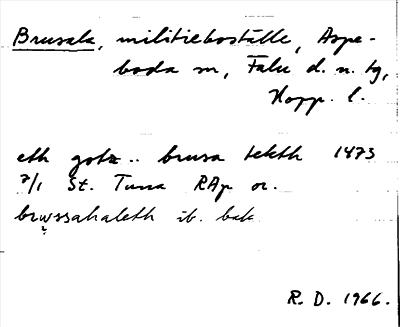 Brusala, militieboställe, Aspe-
boda sn, Falu d. n. tg,
Kopp. l.
eth gotz .. brusa tekth 1473
7/1 St. Tuna RAp or.
brwssahaleth ib. bak
R. D. 1966.